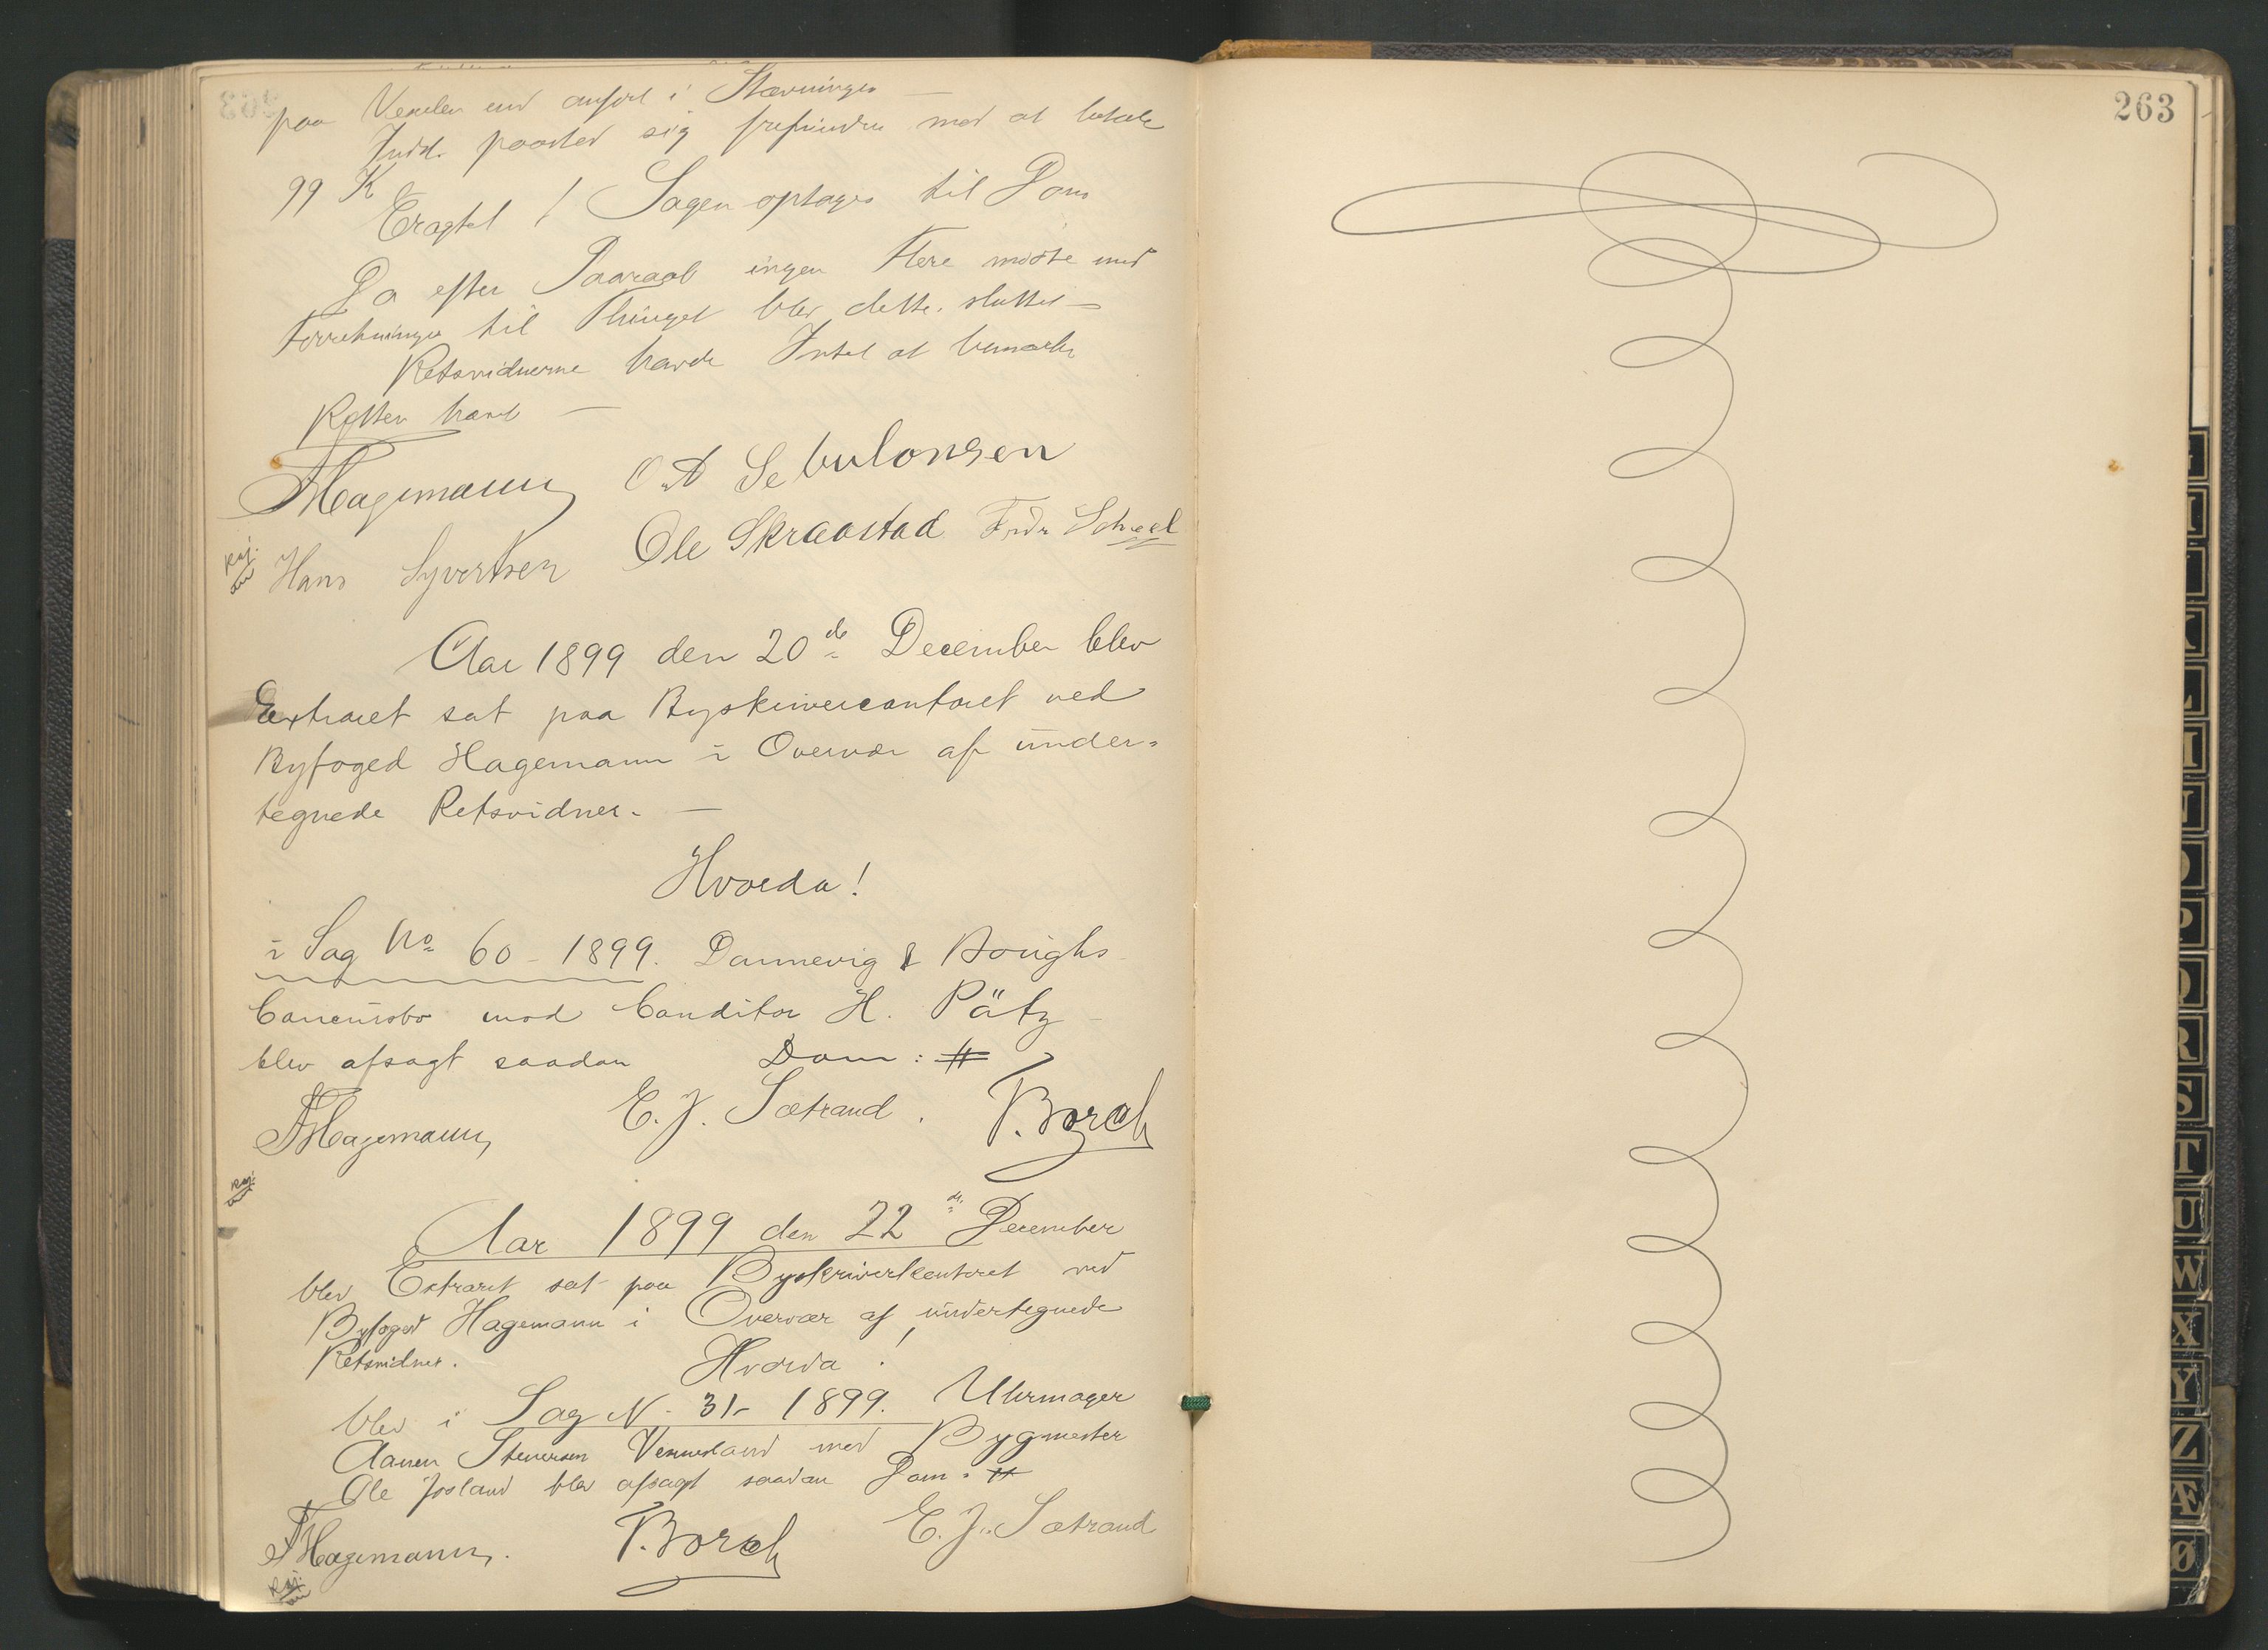 paa Vexelen end anført i Stævningen —
Indst. paastod sig frifunden mod at betale
99 K
Eragtet / Sagen optages til Dom
Da efter Paaraab ingen Flere mødte med
Forretninger til Thinget blev dette sluttet —
Retsvidnerne havde Intet at bemærke
Retten hævet —
Hagemann O. A Sebulonsen
Hans Syvertsen Ole Skraastad Fredr Scheel
Aar 1899 den 20de December blev
Extraret sat paa Byskrivercontoret ved
Byfoged Hagemann i Overvær af under-
tegnede Retsvidner. —
Hvorda!
i Sag No 60 - 1899. Dannevig &
mod Conditor H. Pätz
blev afsagt saadan Dom: #
Hagemann E. J. Sætrand. T. Borch
Aar 1899 den 22de December
blev Extraret sat paa Byskriverkontoret ved
Byfoged Hagemann i Overvær af undertegnede
Retsvidner. Hvorda!
blev i Sag N. 31 - 1899. Uhrmager
Aanen Stenersen Vennesland mod Bygmester
Ole Josland blev afsagt saadan Dom: #
Hagemann. T. Borch E. J. Sætrand
263
T
U
W
X
Y
Z
Æ
Ø